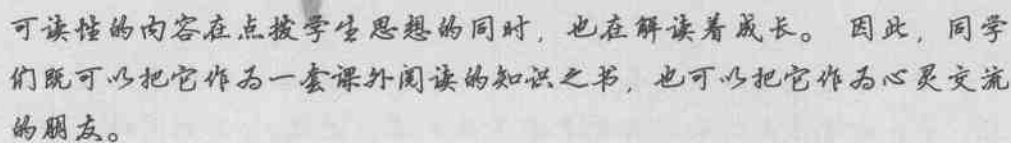 可读性的内容在点拨学生思想的同时，也在解读着成长。 因此，同学
们既可以把它作为一套课外阅读的知识之书，也可以把它作为心灵交流
的朋友。